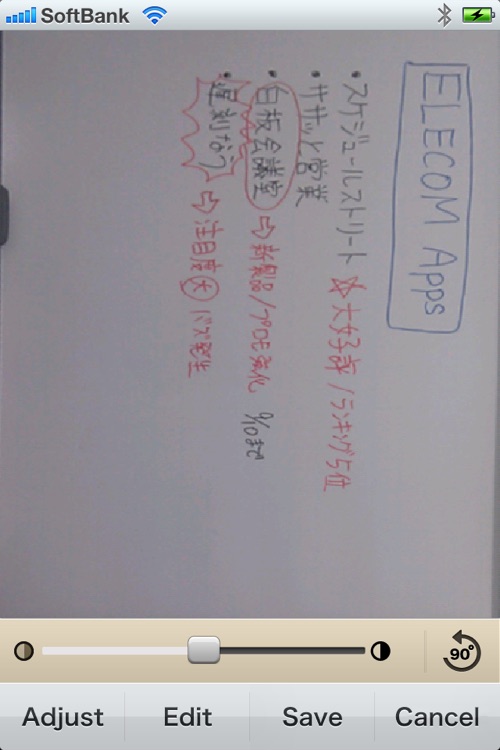 SoftBank
ELECOM Apps
・スケジュールストリート ☆大好評/ランキング5位
・ササッと営業
・白板会議室 ⇨ 新製品/プロモ強化 9/10まで
・遅刻なう ⇨ 注目度大 バズ発生
90°
Adjust Edit Save Cancel